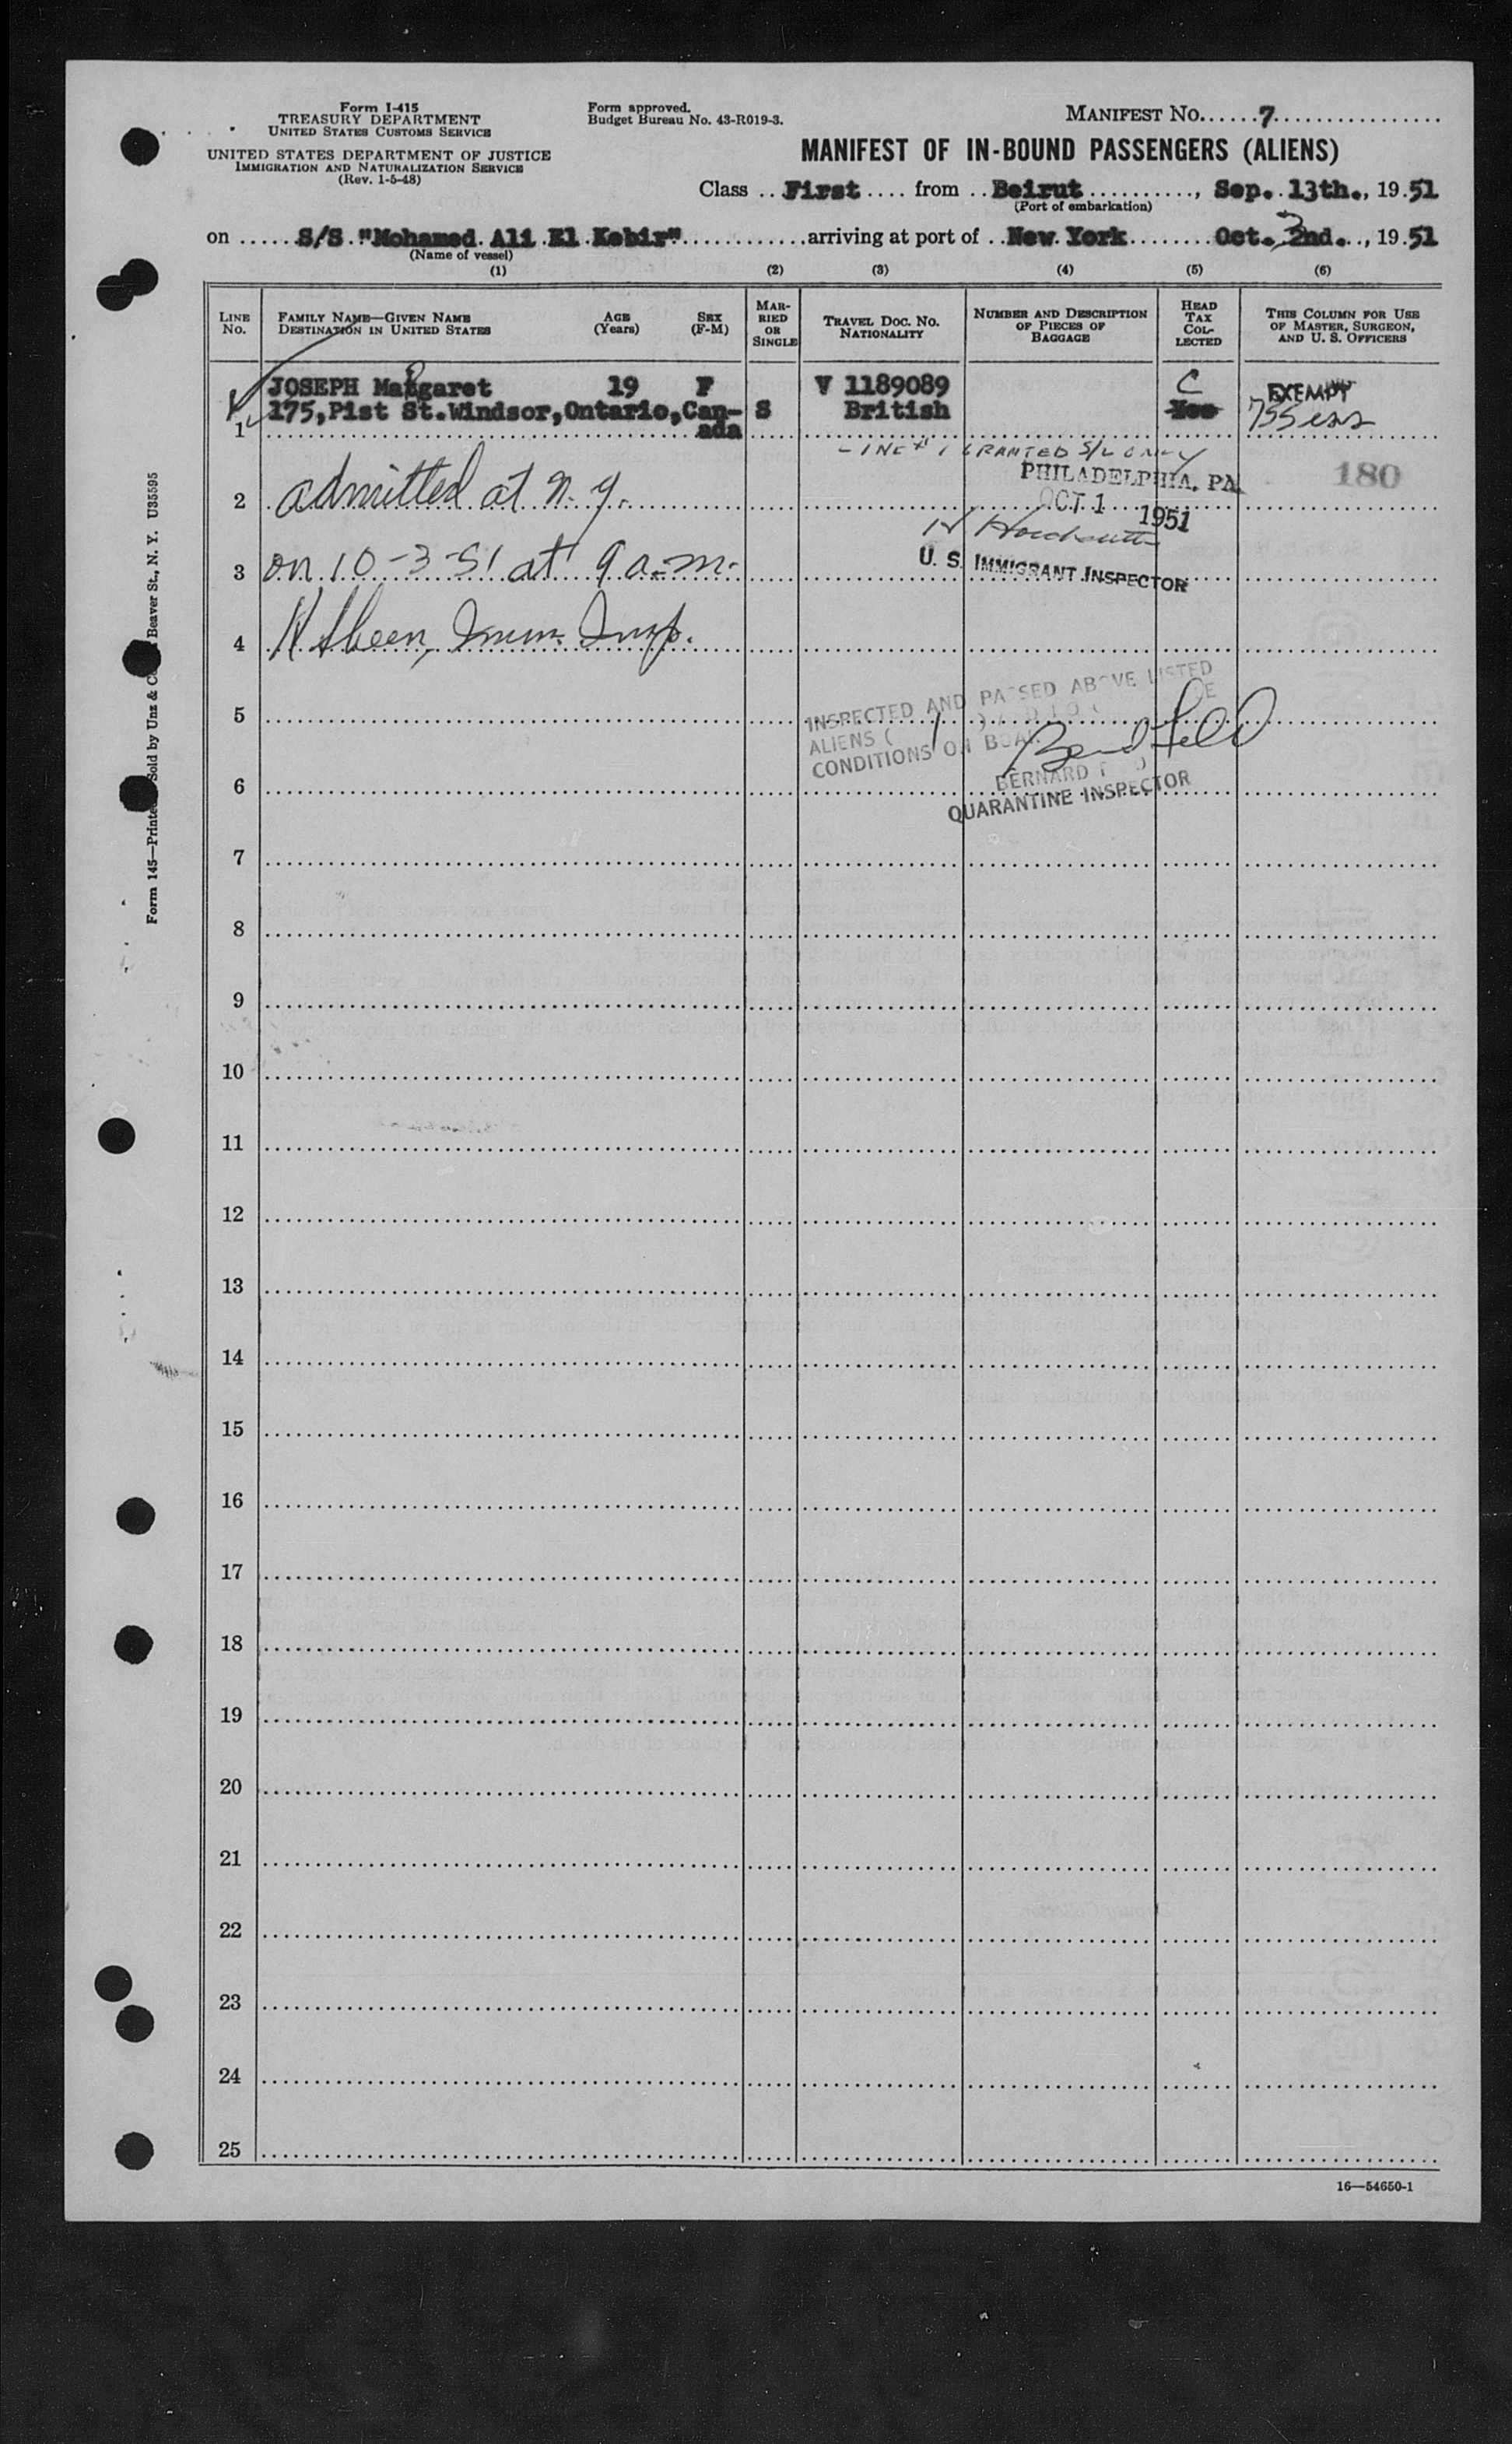 Form I-415
TREASURY DEPARTMENT
UNITED STATES CUSTOMS SERVICE
UNITED STATES DEPARTMENT OF JUSTICE
IMMIGRATION AND NATURALIZATION SERVICE
(Rev. 1-5-48)
Form approved.
Budget Bureau No. 43-R019-3.
MANIFEST No. 7
MANIFEST OF IN-BOUND PASSENGERS (ALIENS)
Class First from Beirut, Sep. 13th., 19 51
(Port of embarkation)
on S/S "Mohamed Ali El Kebir" arriving at port of New York Oct. 3nd., 19 51
(Name of vessel)
(1) (2) (3) (4) (5) (6)
LINE No.
FAMILY NAME—GIVEN NAME
DESTINATION IN UNITED STATES
AGE (Years)
SEX (F-M)
MARRIED OR SINGLE
TRAVEL DOC. NO.
NATIONALITY
NUMBER AND DESCRIPTION OF PIECES OF BAGGAGE
HEAD TAX COLLECTED
THIS COLUMN FOR USE OF MASTER, SURGEON, AND U. S. OFFICERS
JOSEPH Margaret 19 F V 1189089 C EXEMPT
175,Pist St.Windsor,Ontario,Can- S British
1 ada
LINE # 1 GRANTED S/L ONLY
PHILADELPHIA, PA. 180
2 admitted at N.Y. OCT 1 1951
3 on 10-3-51 at 9 a.m. U. S. IMMIGRANT INSPECTOR
4 Imm. Insp.
5 INSPECTED AND PASSED ABOVE LISTED
ALIENS ( 1 )
CONDITIONS ON BOARD
6 BERNARD
QUARANTINE INSPECTOR
7
8
9
10
11
12
13
14
15
16
17
18
19
20
21
22
23
24
25
16—54650-1
Form 145—Printed Sold by Unz & Beaver St., N. Y. U35595